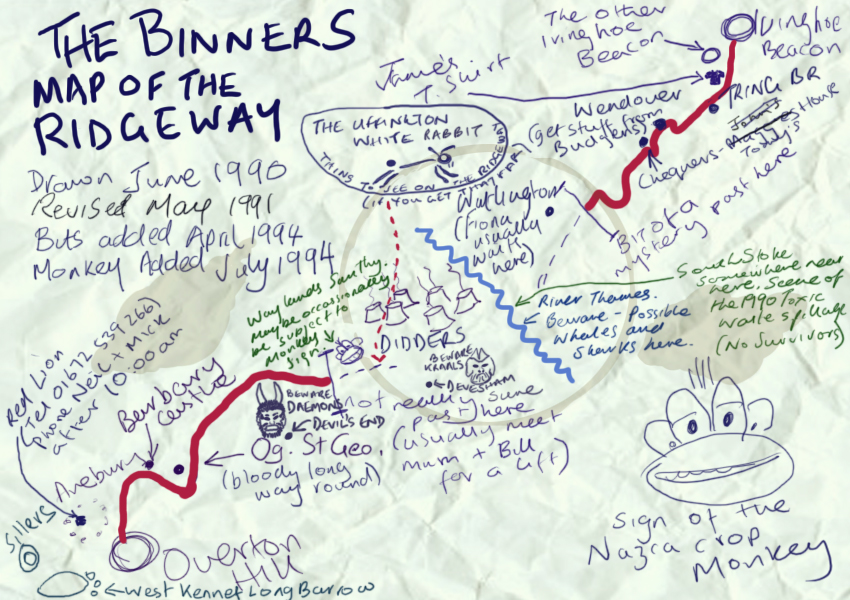 THE BINNERS
MAP OF THE
RIDGEWAY
Drawn June 1990
Revised May 1991
Bits added April 1994
Monkey Added July 1994
James's
T. Shirt
The Other
Ivinghoe
Beacon
Ivinghoe
Beacon
TRING BR
Wendover
(Get stuff from
Budgens)
Chequers -
John's
House
Tody's
THE UFFINGTON
WHITE RABBIT
THINGS TO SEE ON THE RIDGEWAY
(IF YOU GET THAT FAR)
Watlington
(Fiona
usually
waits
here)
Bit of a
mystery past here
South Stoke
somewhere near
here. Scene of
the 1990 Toxic
waste spillage
(No Survivors)
River Thames.
Beware - Possible
whales and
sharks here.
Waylands Smithy.
May be occassionally
be subject to
monkey
sign
DIDDERS
BEWARE
KRAALS
DEVESHAM
BEWARE
DAEMONS
DEVIL'S END
not really sure
past here
(usually meet
mum + Bill
for a lift)
Red Lion
(Tel 01672 539266)
Phone Neil + Mick
after 10:00am
Barbury
Castle
Avebury
Og. St Geo.
(bloody long
way round)
Sillers
Overton
Hill
West Kennet Long Barrow
Sign of the
Nazca Crop
Monkey